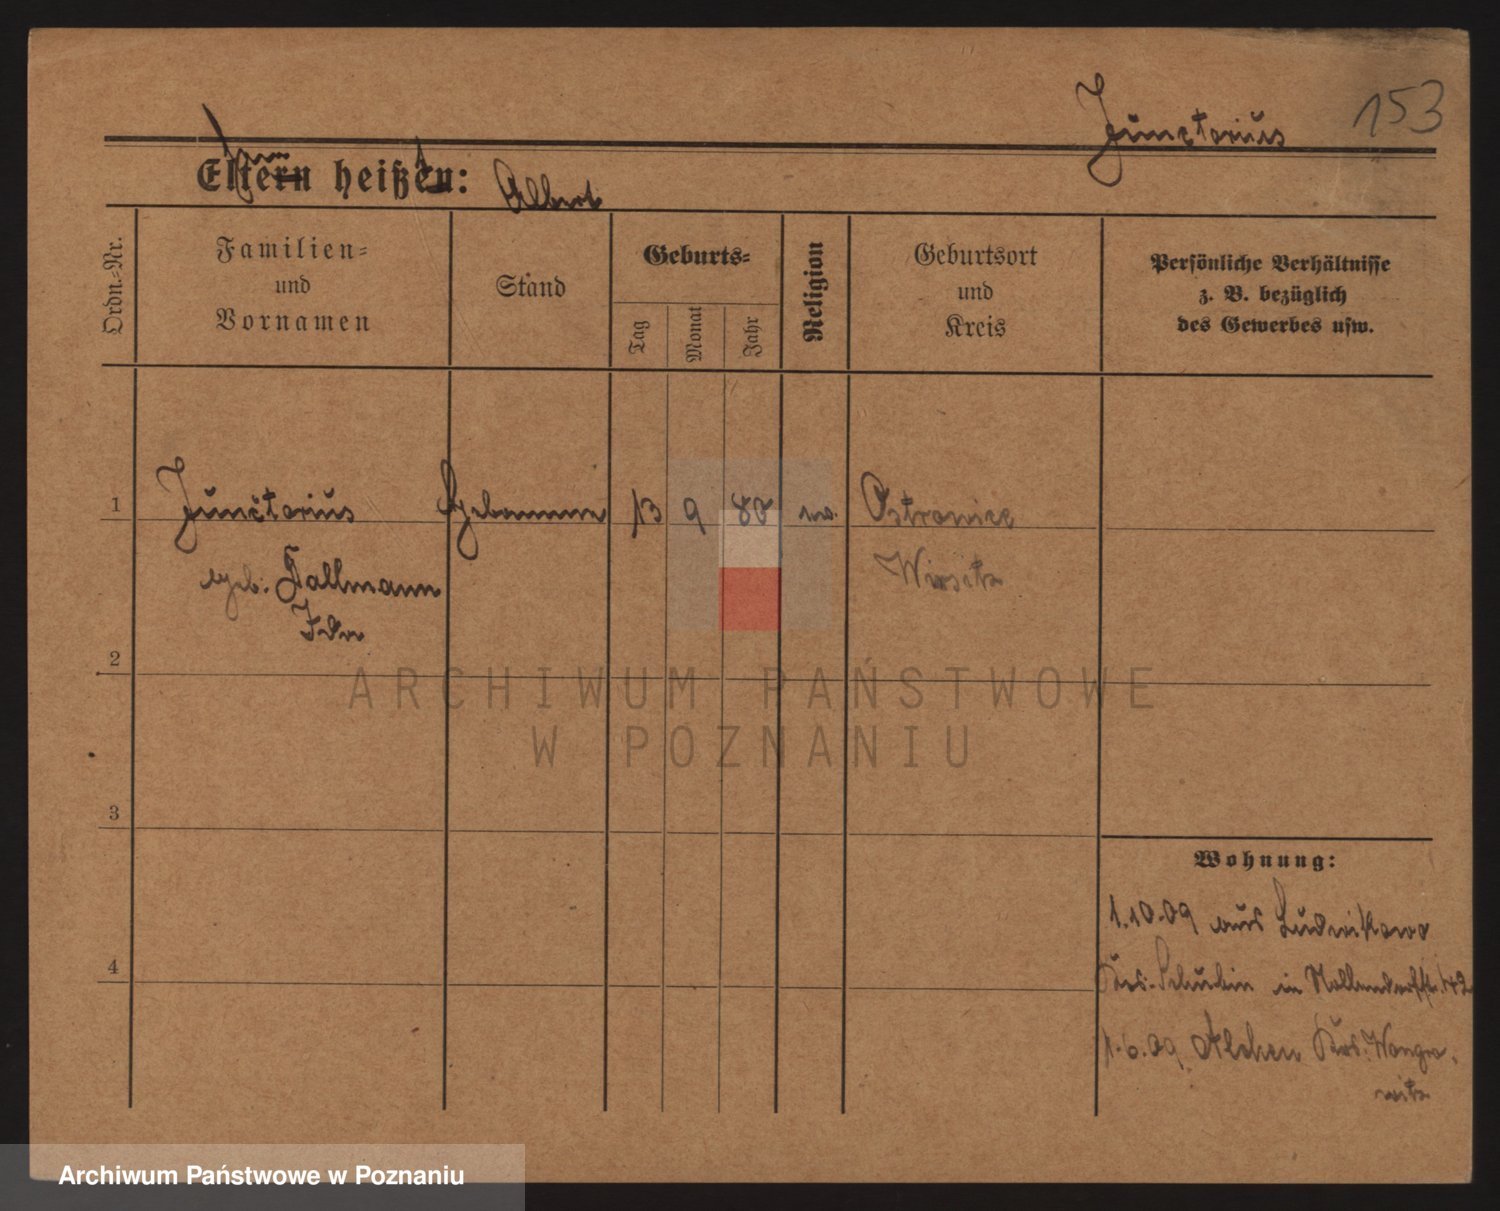 Junctorius 153
Eltern heißen: Albert
Ordn.-Nr.
Familien-
und
Vornamen
Stand
Geburts-
Tag
Monat
Jahr
Religion
Geburtsort
und
Kreis
Persönliche Verhältnisse
z. B. bezüglich
des Gewerbes usw.
1 Junctorius Hebamme 13 9 80 Ostrowiec
geb. Tallmann Wirsitz
Ida
2
3
4
Wohnung:
1.10.09 aus Ludwikowo
Krs. Schubin in Nollendorfstr. 42
1.6.09 Krs. Wongro-
witz
ARCHIWUM PAŃSTWOWE
W POZNANIU
Archiwum Państwowe w Poznaniu